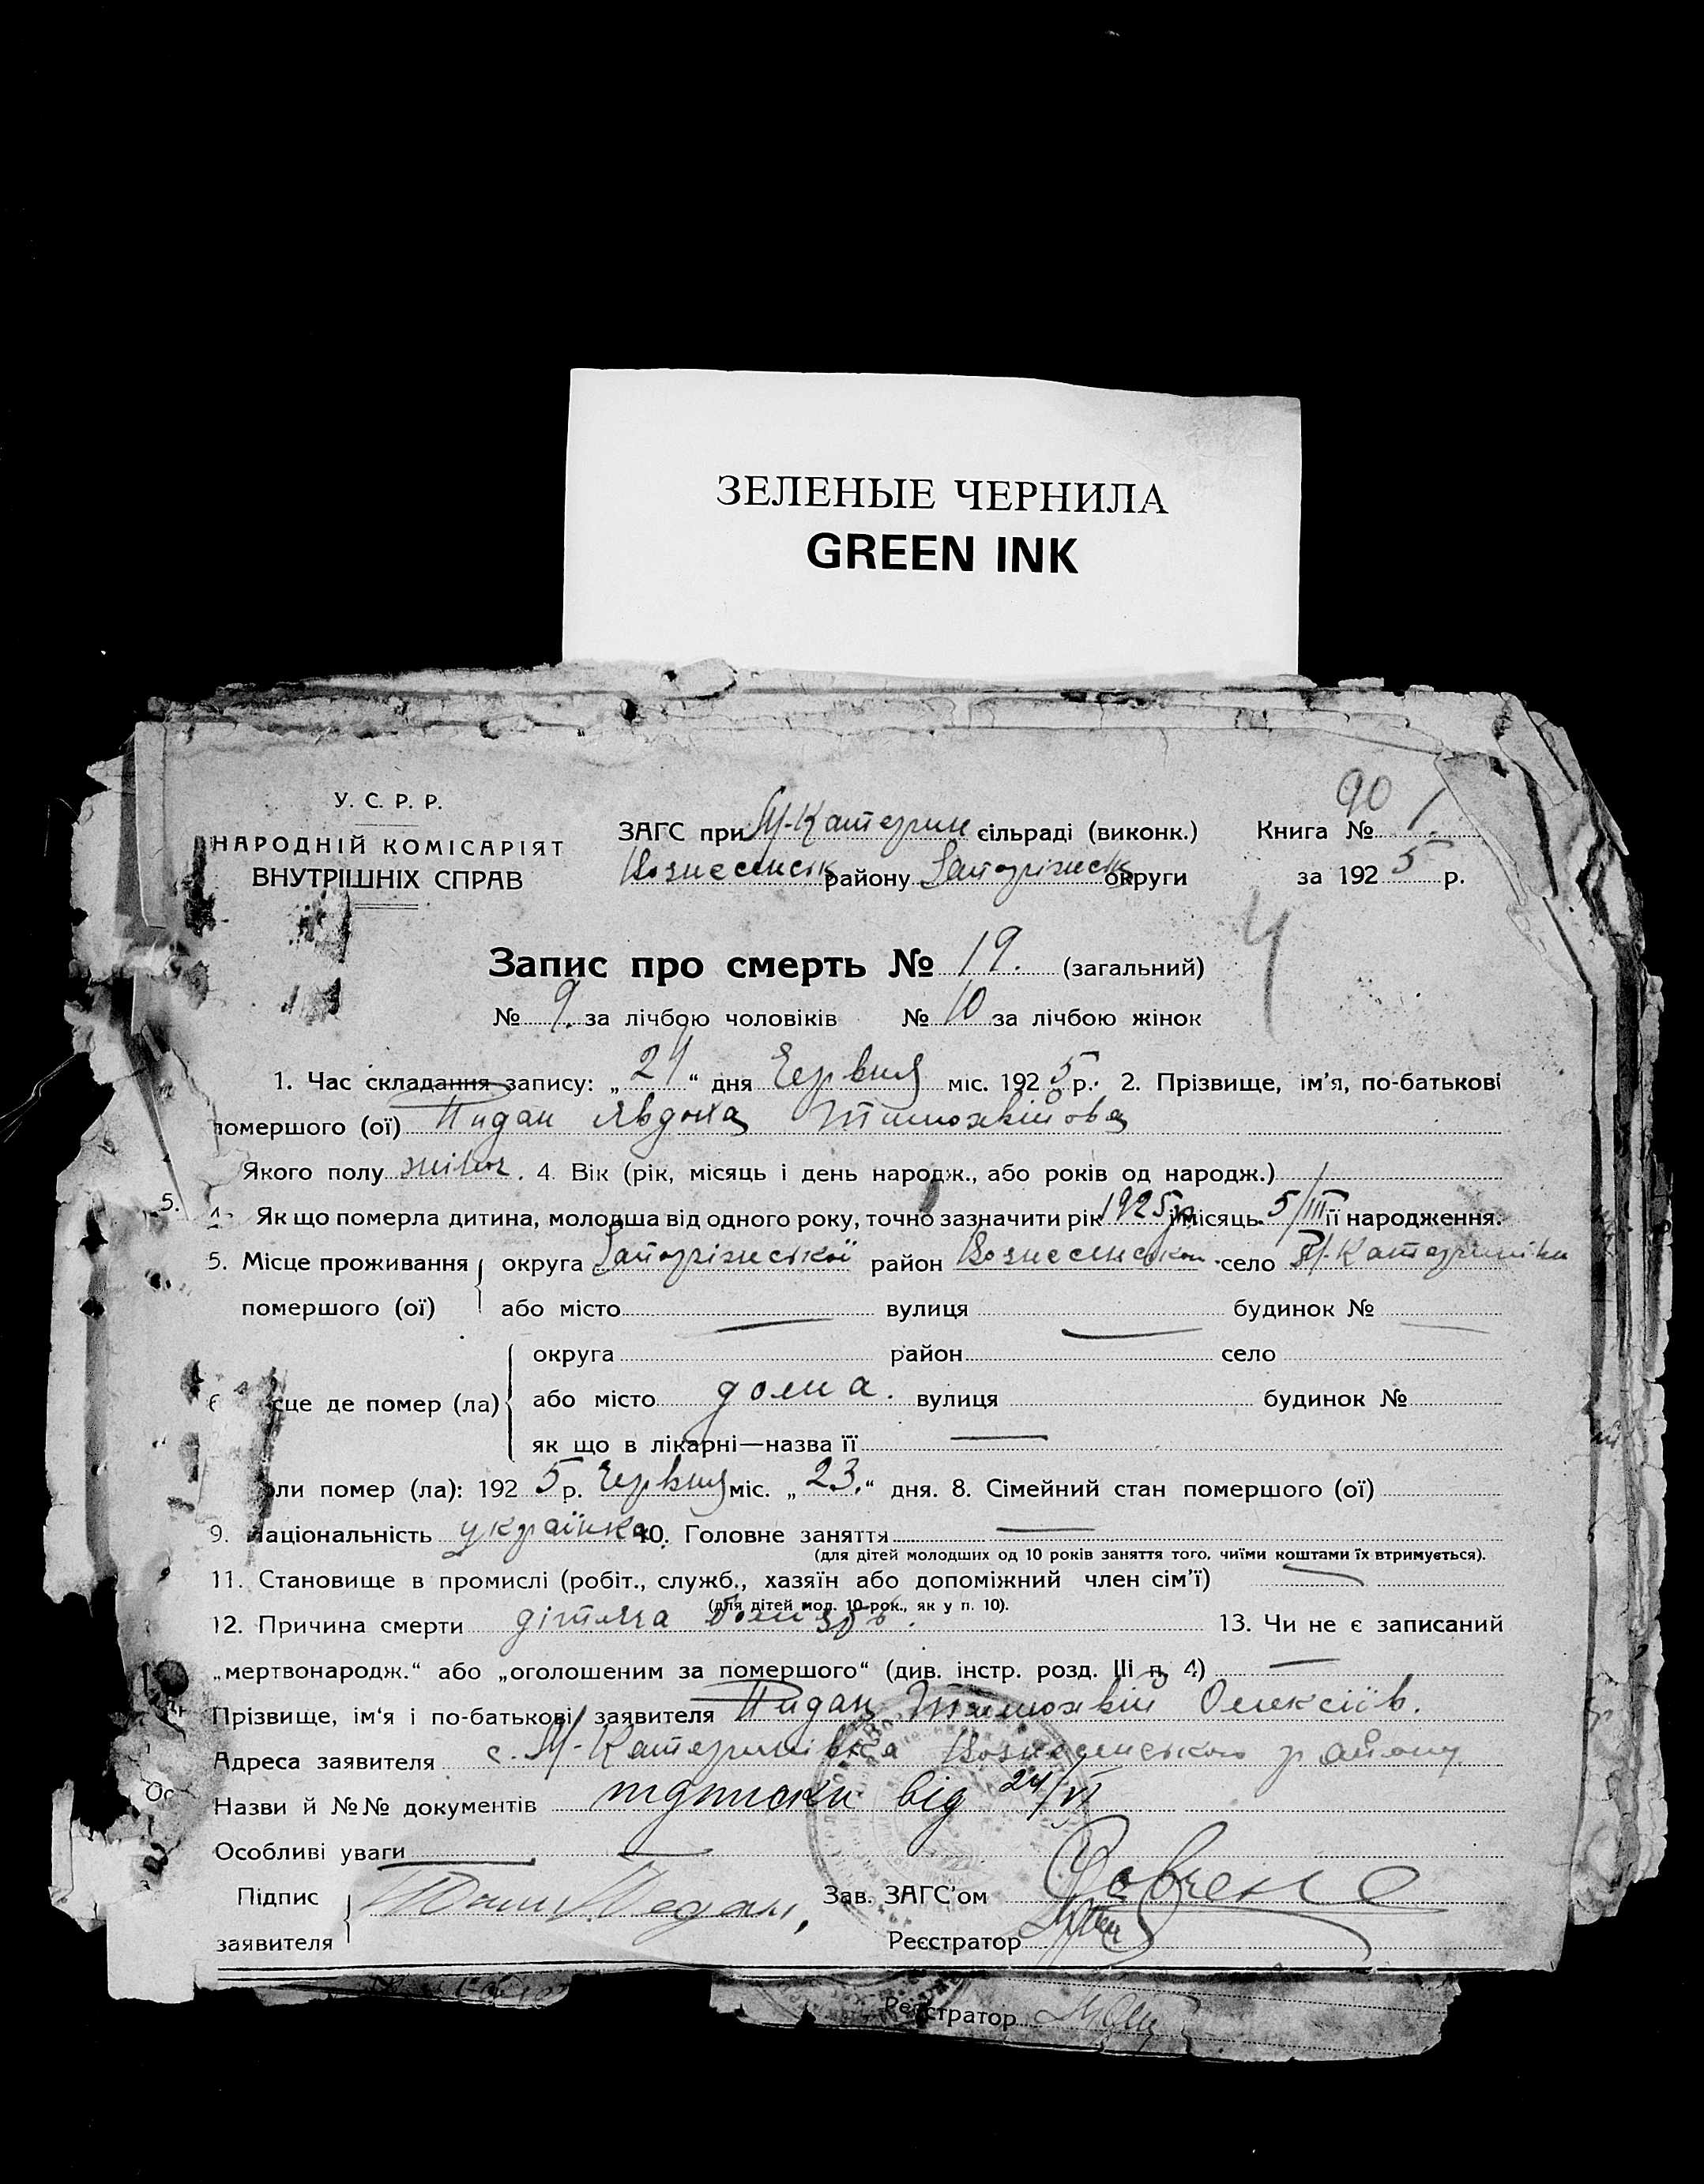 ЗЕЛЕНЫЕ ЧЕРНИЛА
GREEN INK
90
У. С. Р. Р.
НАРОДНІЙ КОМІСАРІЯТ
ВНУТРІШНІХ СПРАВ
ЗАГС при М-Катерин сільраді (виконк.)
Вознесенськ району Запоріжськ округи
Книга № 1.
за 1925 р.
4
Запис про смерть № 19. (загальний)
№ 9. за лічбою чоловіків № 10 за лічбою жінок
1. Час складання запису: „24“ дня Червня міс. 1925 р. 2. Прізвище, ім'я, по-батькові
помершого (ої) Пидан Явдоха Тимохвійова
Якого полу жіноч. 4. Вік (рік, місяць і день народж., або років од народж.)
5. 4. Як що померла дитина, молодша від одного року, точно зазначити рік 1925 р місяць 5/III її народження.
5. Місце проживання округа Запоріжської район Вознесенськ село М-Катеринівки
помершого (ої) або місто — вулиця — будинок № —
округа район село
6 сце де помер (ла) або місто дома. вулиця будинок №
як що в лікарні—назва її —
ли помер (ла): 1925 р. Червня міс. „23.“ дня. 8. Сімейний стан помершого (ої)
9. Національність українка 10. Головне заняття —
(для дітей молодших од 10 років заняття того, чиїми коштами їх втримується).
11. Становище в промислі (робіт., служб., хазяїн або допоміжний член сім'ї) —
(для дітей мол. 10 рок., як у п. 10).
12. Причина смерти дітяча 13. Чи не є записаний
„мертвонародж.“ або „оголошеним за помершого“ (див. інстр. розд. III п. 4) —
Прізвище, ім'я і по-батькові заявителя Пидан Тимохвій Олексіїв.
Адреса заявителя с. М-Катеринівка Вознесенського району
Назви й №№ документів від 24/VI
Особливі уваги —
Підпис
заявителя
Зав. ЗАГС'ом
Реєстратор
Реєстратор